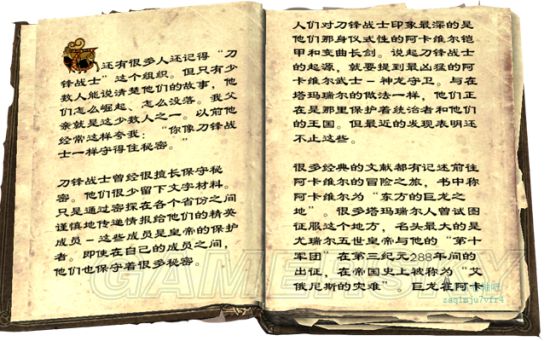 还有很多人还记得“刀
锋战士”这个组织。但只有少
数人能说清楚他们的故事，他
们怎么崛起、怎么没落。我父
亲就是这少数人之一。以前他
经常这样夸我：“你像刀锋战
士一样守得住秘密。”
刀锋战士曾经很擅长保守秘
密。他们很少留下文字材料。
只是通过密探在各个省份之间
谨慎地传递情报给他们的精英
成员－这些成员是皇帝的保护
者。即使在自己的成员之间，
他们也保守着很多秘密。
人们对刀锋战士印象最深的是
他们那身仪式性的阿卡维尔铠
甲和变曲长剑。说起刀锋战士
的起源，就要提到最凶猛的阿
卡维尔武士－神龙守卫。与在
塔玛瑞尔的做法一样，他们正
在是那里保护着统治者和他们
的王国。但最近的发现表明还
不止这些。
很多经典的文献都有记述前往
阿卡维尔的冒险之旅，书中称
阿卡维尔为“东方的巨龙之
地”。很多塔玛瑞尔人曾试图
征服这个地方，名头最大的是
尤瑞尔五世皇帝与他的“第十
军团”在第三纪元288年间的
出征，在帝国史上被称为“艾
俄尼斯的灾难”。巨龙在阿卡
GAMERSKY
zaq1mju7vfr4